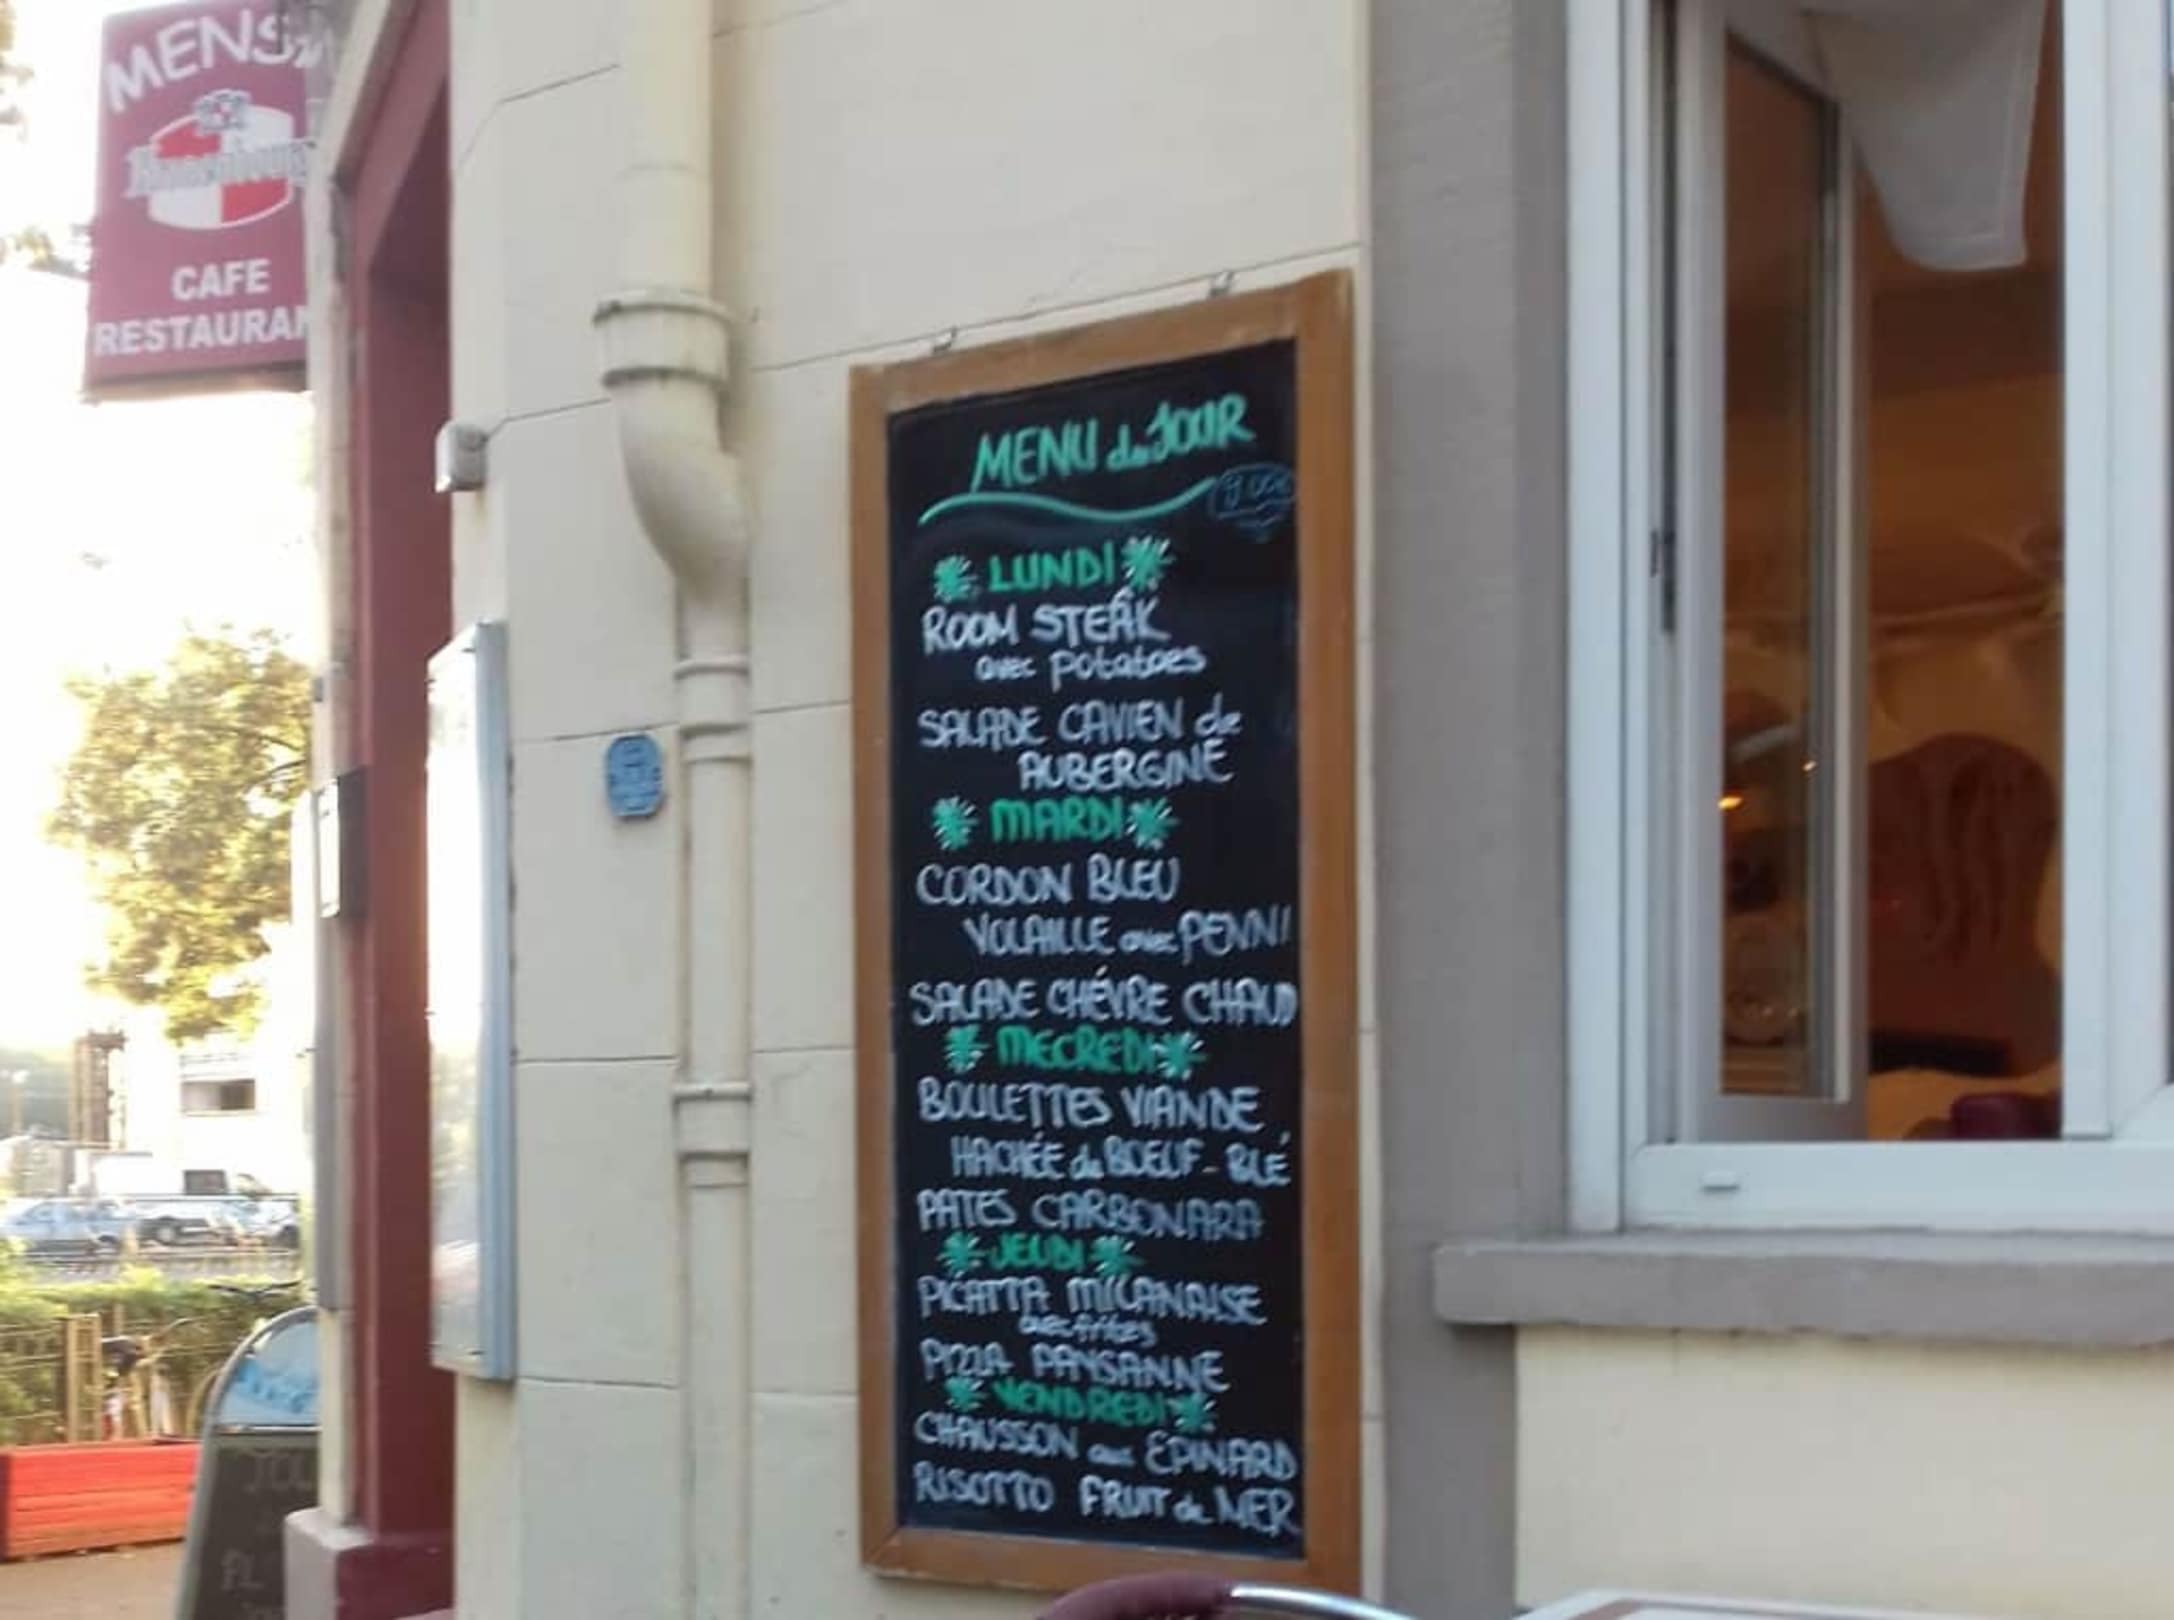 MENSA
CAFE
RESTAURAN
MENU du JOUR
9.00€
LUNDI
ROOM STEAK
avec potatoes
SALADE CAVIEN de
AUBERGINE
MARDI
CORDON BLEU
VOLAILLE avec PENNI
SALADE CHÉVRE CHAUD
MECREDI
BOULETTES VIANDE
HACHÉE de BOEUF - BLÉ
PATES CARBONARA
JEUDI
PICATTA MILANAISE
avec frites
PIZZA PAYSANNE
VENDREDI
CHAUSSON aux EPINARD
RISOTTO FRUIT de MER